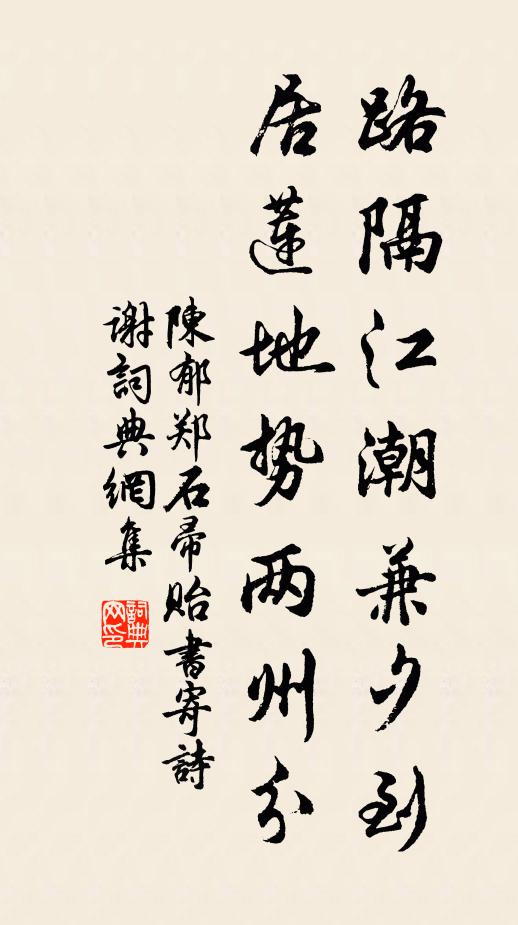 路隔江潮兼夕到
居蓮地势两州分
陳郁郑石帚贻書寄詩
谢詞典網集
詞典网印